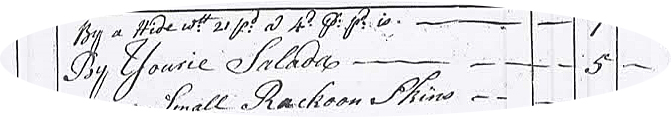 By a Hide wtt 21 pd @ 4d pr pd is. — 1
By Yourie Salada — 5 —
Small Rackoon Skins —